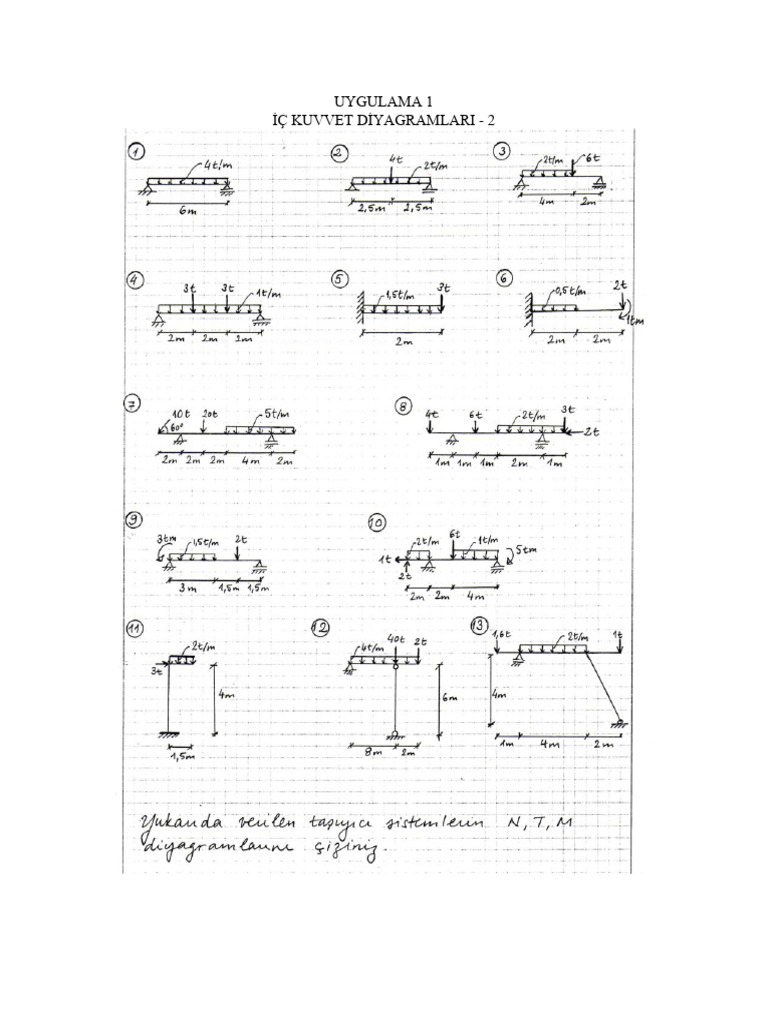 UYGULAMA 1
İÇ KUVVET DİYAGRAMLARI - 2
1 2 3
4t/m 4t 2t/m 2t/m 6t
6m 2,5m 2,5m 4m 2m
4 5 6
3t 3t 1t/m 1,5t/m 3t 0,5t/m 2t
1tm
2m 2m 2m 2m 2m 2m
7 8
10t 60° 20t 5t/m 4t 6t 2t/m 3t
2t
2m 2m 2m 4m 2m 1m 1m 1m 2m 1m
9 10
3tm 1,5t/m 2t 2t/m 6t 1t/m 5tm
1t
2t
3m 1,5m 1,5m 2m 2m 4m
11 12 13
2t/m 4t/m 40t 2t 1,6t 2t/m 1t
3t
4m 6m 4m
1,5m 8m 2m 1m 4m 2m
Yukarıda verilen taşıyıcı sistemlerin N, T, M
diyagramlarını çiziniz.